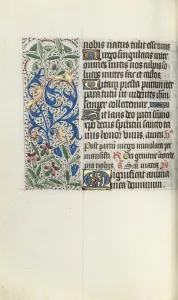 nobis natus tulisse tuus.
Virgo singularis inter
omnes mitis nos culpis so
lutos mites fac et castos.
Vitam presta puram iter
para tutum ut videntes ihm
semper colletemur.
Sit laus deo patri summo
xpo decus spiritui sancto tri
nus honor unus. amen
Post partum virgo inviolata per
mansisti. Dei genitrix intercede
pro nobis.
Magnificat anima
mea dominum